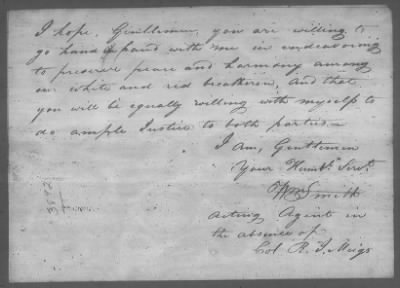 I hope, Gentlemen, you are willing to
go hand & hand with me in endeavoring
to preserve peace and harmony among
our white and red bretheren, and that
you will be equally willing with myself to
do ample Justice to both parties.—
I am, Gentlemen
Your Humbl. Servt.
Wm Smith
acting Agent in
the absence of
Col R. J. Meigs